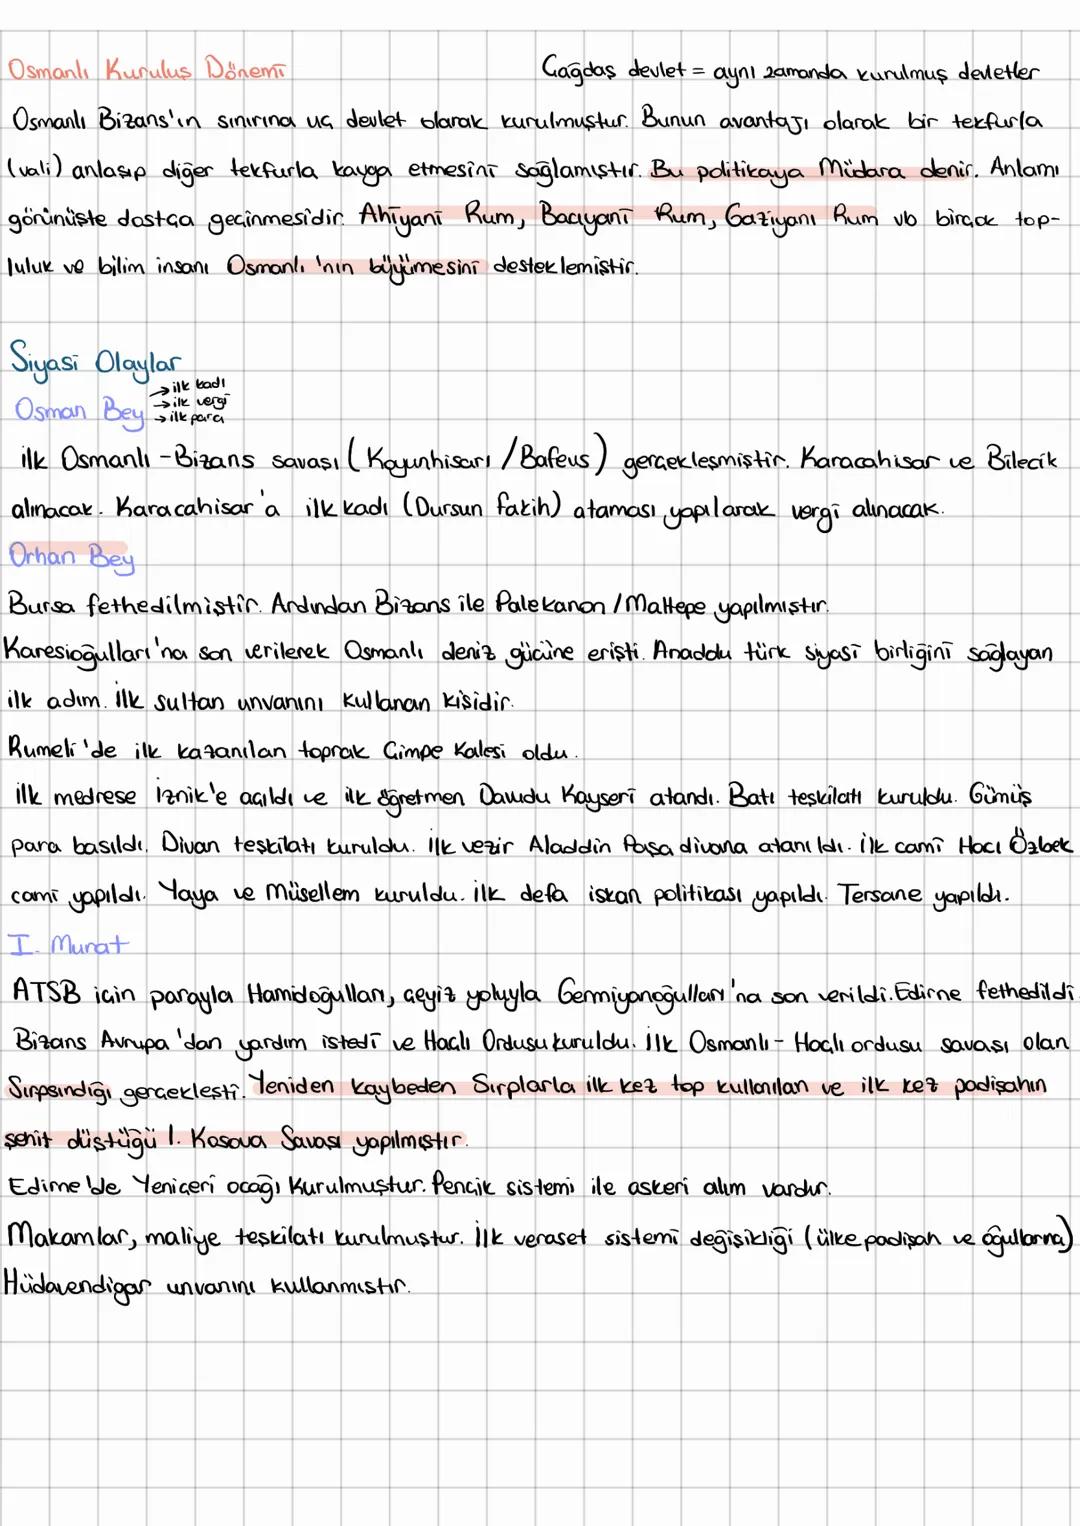 Osmanlı Kuruluş Dönemi
Çağdaş devlet = aynı zamanda kurulmuş devletler
Osmanlı Bizans'ın sınırına uç devlet olarak kurulmuştur. Bunun avantajı olarak bir tekfurla
(vali) anlaşıp diğer tekfurla kavga etmesini sağlamıştır. Bu politikaya Müdara denir. Anlamı
görünüşte dostça geçinmesidir. Ahiyani Rum, Bacıyani Rum, Gaziyanı Rum vb birçok top-
luluk ve bilim insanı Osmanlı'nın büyümesini desteklemiştir.
Siyasi Olaylar
Osman Bey
→ ilk kadı
→ ilk vergi
→ ilk para
ilk Osmanlı-Bizans savaşı (Koyunhisarı/Bafeus) gerçekleşmiştir. Karacahisar ve Bilecik
alınacak. Karacahisar'a ilk kadı (Dursun fakih) ataması yapılarak vergi alınacak.
Orhan Bey
Bursa fethedilmiştir. Ardından Bizans ile Palekanon/Maltepe yapılmıştır.
Karesioğulları'na son verilerek Osmanlı deniz gücüne erişti. Anaddu türk siyasi birliğini sağlayan
ilk adım. İlk sultan unvanını kullanan kişidir.
Rumeli'de ilk kazanılan toprak Çimpe Kalesi oldu.
ilk medrese İznik'e açıldı ve ilk öğretmen Davudu Kayseri atandı. Batı teşkilatı kuruldu. Gümüş
para basıldı. Divan teşkilatı kuruldu. İlk vezir Aladdin Paşa divana atanıldı. İlk cami Hacı Özbek
cami yapıldı. Yaya ve Müsellem kuruldu. İlk defa iskan politikası yapıldı. Tersane yapıldı.
I. Murat
ATSB için parayla Hamidoğulları, çeyiz yoluyla Germiyanoğulları'na son verildi. Edirne fethedildi.
Bizans Avrupa'dan yardım istedi ve Haçlı Ordusu kuruldu. İlk Osmanlı-Haçlı ordusu savaşı olan
Sırpsındığı gerçekleşti. Yeniden kaybeden Sırplarla ilk kez top kullanılan ve ilk kez padişahın
şehit düştüğü 1. Kosova Savaşı yapılmıştır.
Edirne'de Yeniçeri ocağı kurulmuştur. Pençik sistemi ile askeri alım vardır.
Makamlar, maliye teşkilatı kurulmuştur. İlk veraset sistemi değişikliği (ülke padişah ve oğullarına)
Hüdavendigar unvanını kullanmıştır.